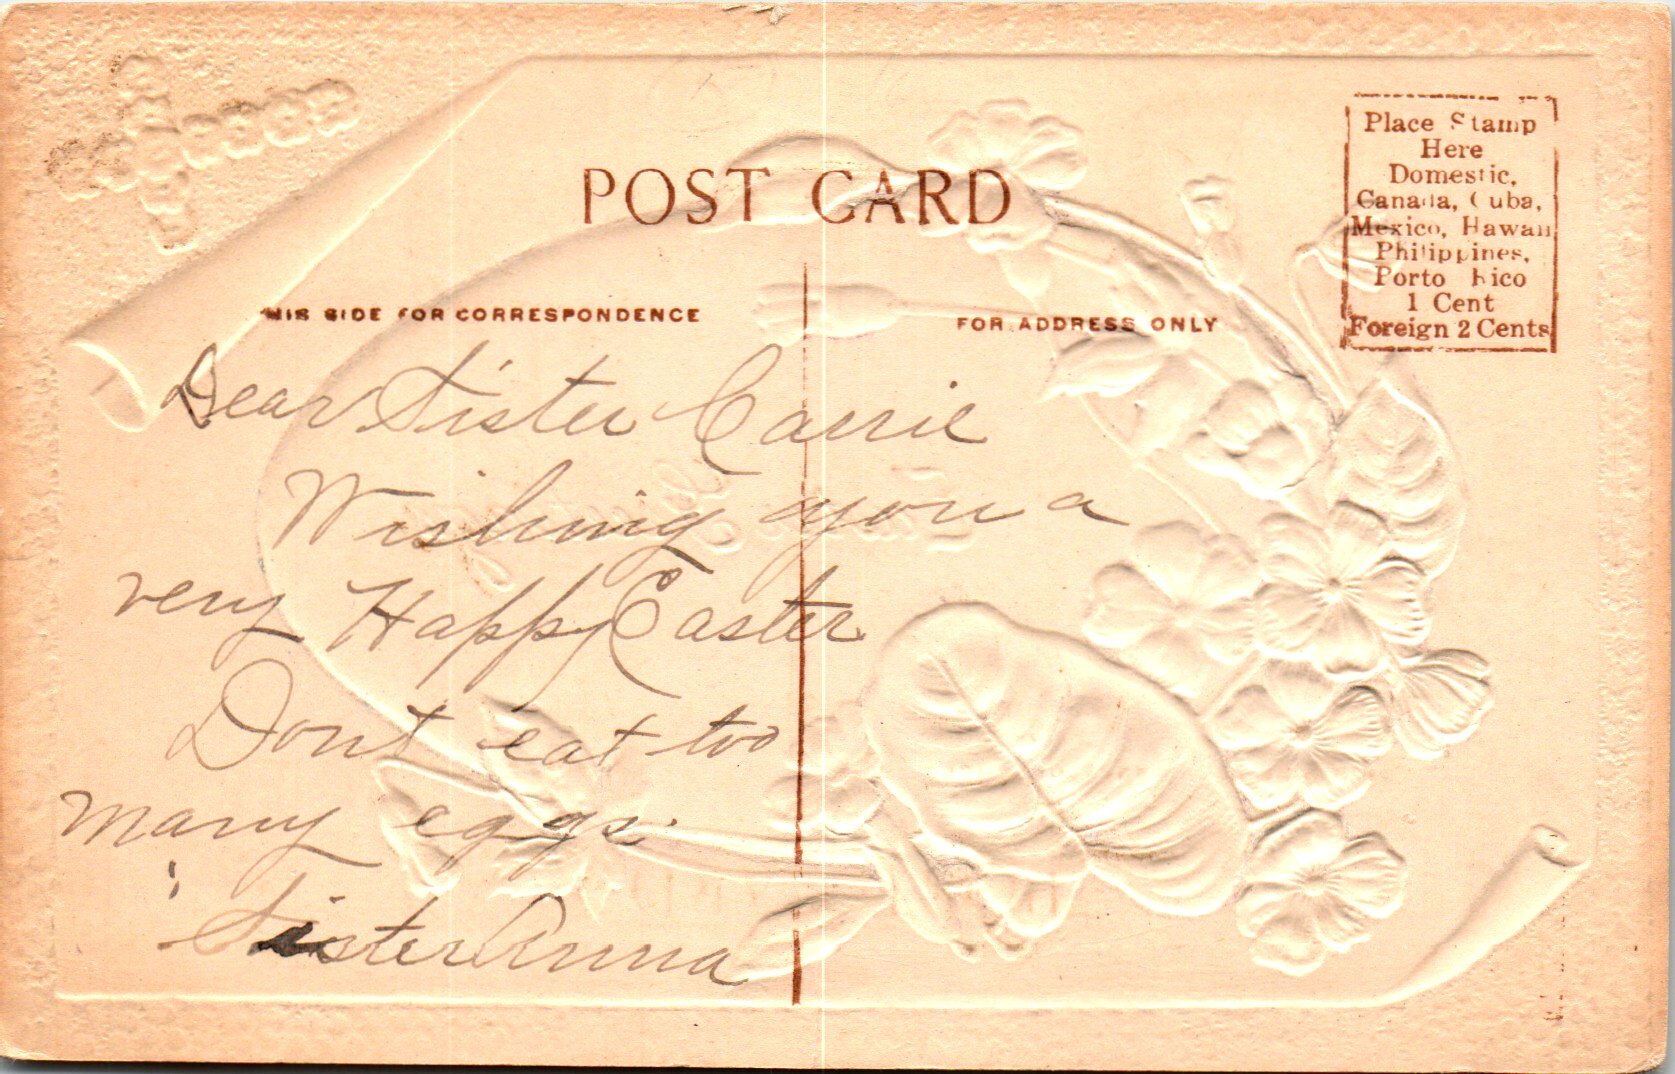 POST CARD
Place Stamp
Here
Domestic,
Canada, Cuba,
Mexico, Hawaii
Philippines,
Porto Rico
1 Cent
Foreign 2 Cents
THIS SIDE FOR CORRESPONDENCE
FOR ADDRESS ONLY
Dear Sister Carrie
Wishing you a
very Happy Easter
Dont eat too
many eggs.
Sister Anna